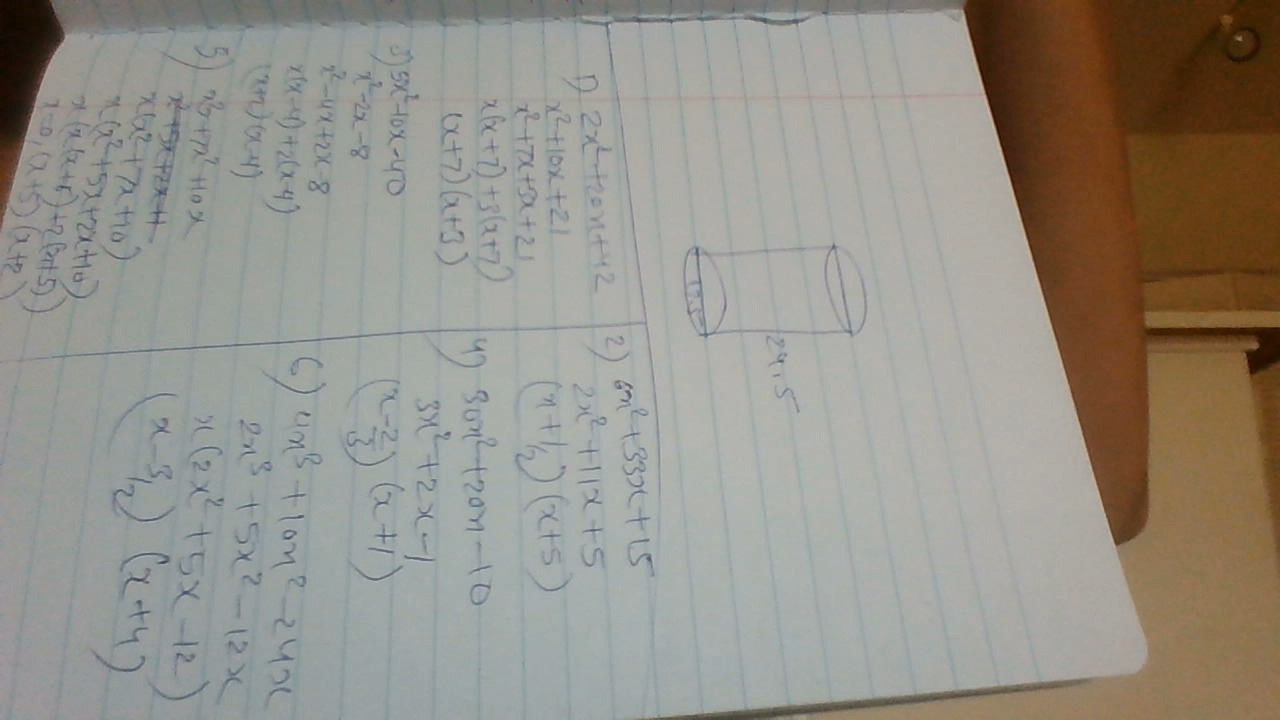 24.5
1) 2x²+20x+42
x²+10x+21
x²+7x+3x+21
x(x+7)+3(x+7)
(x+7)(x+3)
2) 6x²+33x+15
2x²+11x+5
(x+1/2)(x+5)
3) 5x²-10x-40
x²-2x-8
x²-4x+2x-8
x(x-4)+2(x-4)
(x+2)(x-4)
4) 30x²+20x-10
3x²+2x-1
(x-2/3)(x+1)
5) x³+7x²+10x
x(x²+7x+10)
x(x²+5x+2x+10)
x(x(x+5)+2(x+5))
x=0,(x+5)(x+2)
6) 4x³+10x²-24x
2x³+5x²-12x
x(2x²+5x-12)
(x-3/2)(x+4)